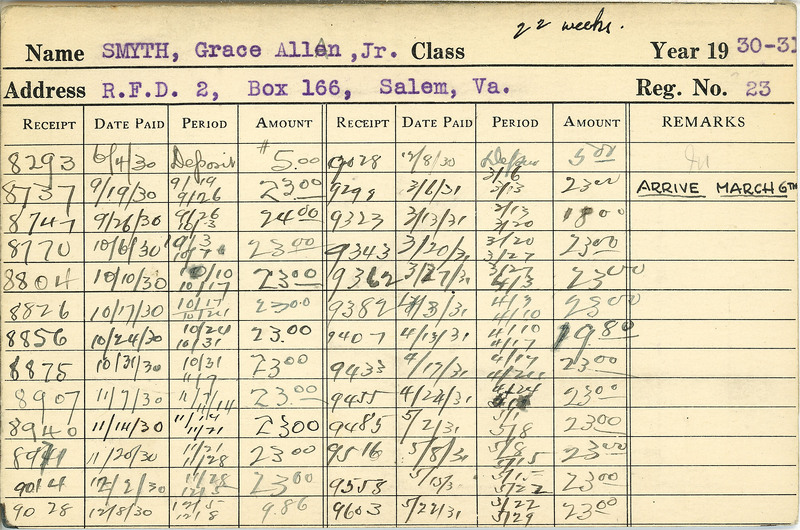 22 weeks.
Name SMYTH, Grace Allen, Jr. Class Year 19 30-31
Address R.F.D. 2, Box 166, Salem, Va. Reg. No. 23
RECEIPT DATE PAID PERIOD AMOUNT RECEIPT DATE PAID PERIOD AMOUNT REMARKS
8293 6/4/30 Deposit $5.00 9028 12/8/30 5.00
8737 9/19/30 9/19 9/26 23.00 9299 3/6/31 3/6 3/13 23.00 ARRIVE MARCH 6TH
8747 9/26/30 9/26 10/3 24.00 9323 3/13/31 3/13 3/20 18.00
8770 10/6/30 10/3 23.00 9343 3/20/31 3/20 3/27 23.00
8804 10/10/30 10/10 10/17 23.00 9362 3/27/31 3/27 4/3 23.00
8826 10/17/30 10/17 10/24 23.00 9382 4/3/31 4/3 4/10 23.00
8856 10/24/30 10/24 10/31 23.00 9407 4/13/31 4/10 4/17 19.80
8875 10/31/30 10/31 11/7 23.00 9433 4/17/31 4/17 23.00
8907 11/7/30 11/7 11/14 23.00 9455 4/24/31 4/24 23.00
8940 11/14/30 11/14 11/21 23.00 9485 5/2/31 5/1 5/8 23.00
11/20/30 11/21 11/28 23.00 9516 5/8/31 5/8 5/15 23.00
9014 12/2/30 11/28 12/5 23.00 9558 5/15/31 5/15 5/22 23.00
9028 12/8/30 12/5 12/8 9.86 9603 5/22/31 5/22 5/29 23.00